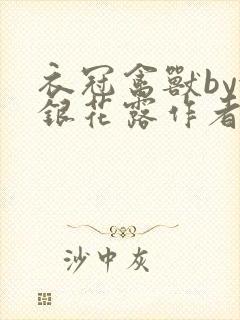 衣冠禽獸by
銀花露作者
沙中灰